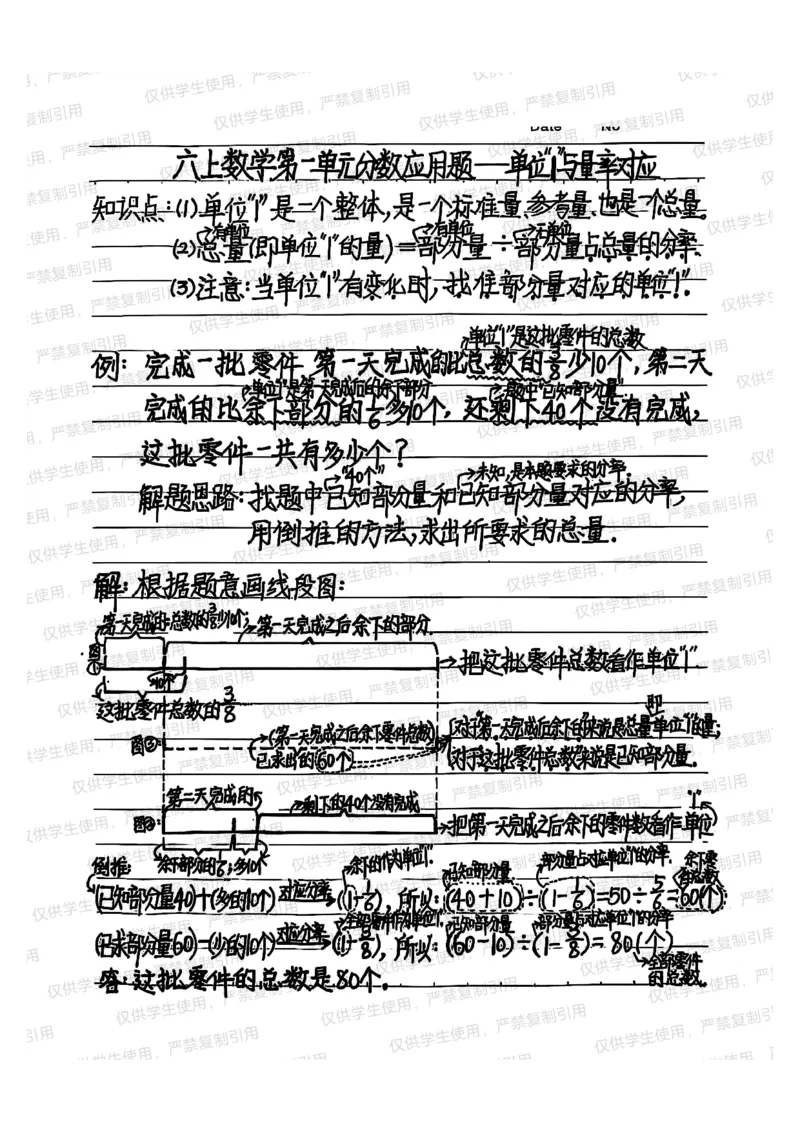 Date No
六上数学第一单元分数应用题——单位"1"与量率对应
知识点:(1)单位"1"是一个整体,是一个标准量、参考量,也是一个总量。
有单位 有单位 无单位
(2)总量(即单位"1"的量)=部分量÷部分量占总量的分率.
(3)注意:当单位"1"有变化时,找准部分量对应的单位"1".
单位"1"是这批零件的总数
例:完成一批零件,第一天完成的比总数的3/8少10个,第二天
单位"1"是第一天完成后的余下部分 题中"已知部分量"
完成的比余下部分的1/6多10个,还剩下40个没有完成,
这批零件一共有多少个?
"40个" 未知,是本题要求的分率,
解题思路:找题中已知部分量和已知部分量对应的分率,
用倒推的方法,求出所要求的总量.
解:根据题意画线段图:
第一天完成的总数的3/8少10个; 第一天完成之后余下的部分.
图① 把这批零件总数看作单位"1"
"10个"
这批零件总数的3/8
即
图②: (第一天完成之后余下零件总数) 对于"第一天完成后余下的"来说是总量单位"1"的量;
已求出的(60个) 对于"这批零件总数"来说是已知部分量.
第二天完成的 剩下的40个没有完成 "1"
图③: 把第一天完成之后余下的零件数看作单位
余下部分的1/6;多10个
倒推: 余下的作为单位"1". 已知部分量 部分量占对应单位"1"的分率. 余下零件总数
(已知部分量40)+(多的10个) 对应分率 (1-1/6), 所以:(40+10)÷(1-1/6)=50÷5/6=60(个);
全部零件作为单位"1" 已知部分量 部分量占对应单位"1"的分率
(已求部分量60)-(少的10个) 对应分率 (1-3/8), 所以:(60-10)÷(1-3/8)=80(个)
全部零件的总数.
答:这批零件的总数是80个.
仅供学生使用,严禁复制引用